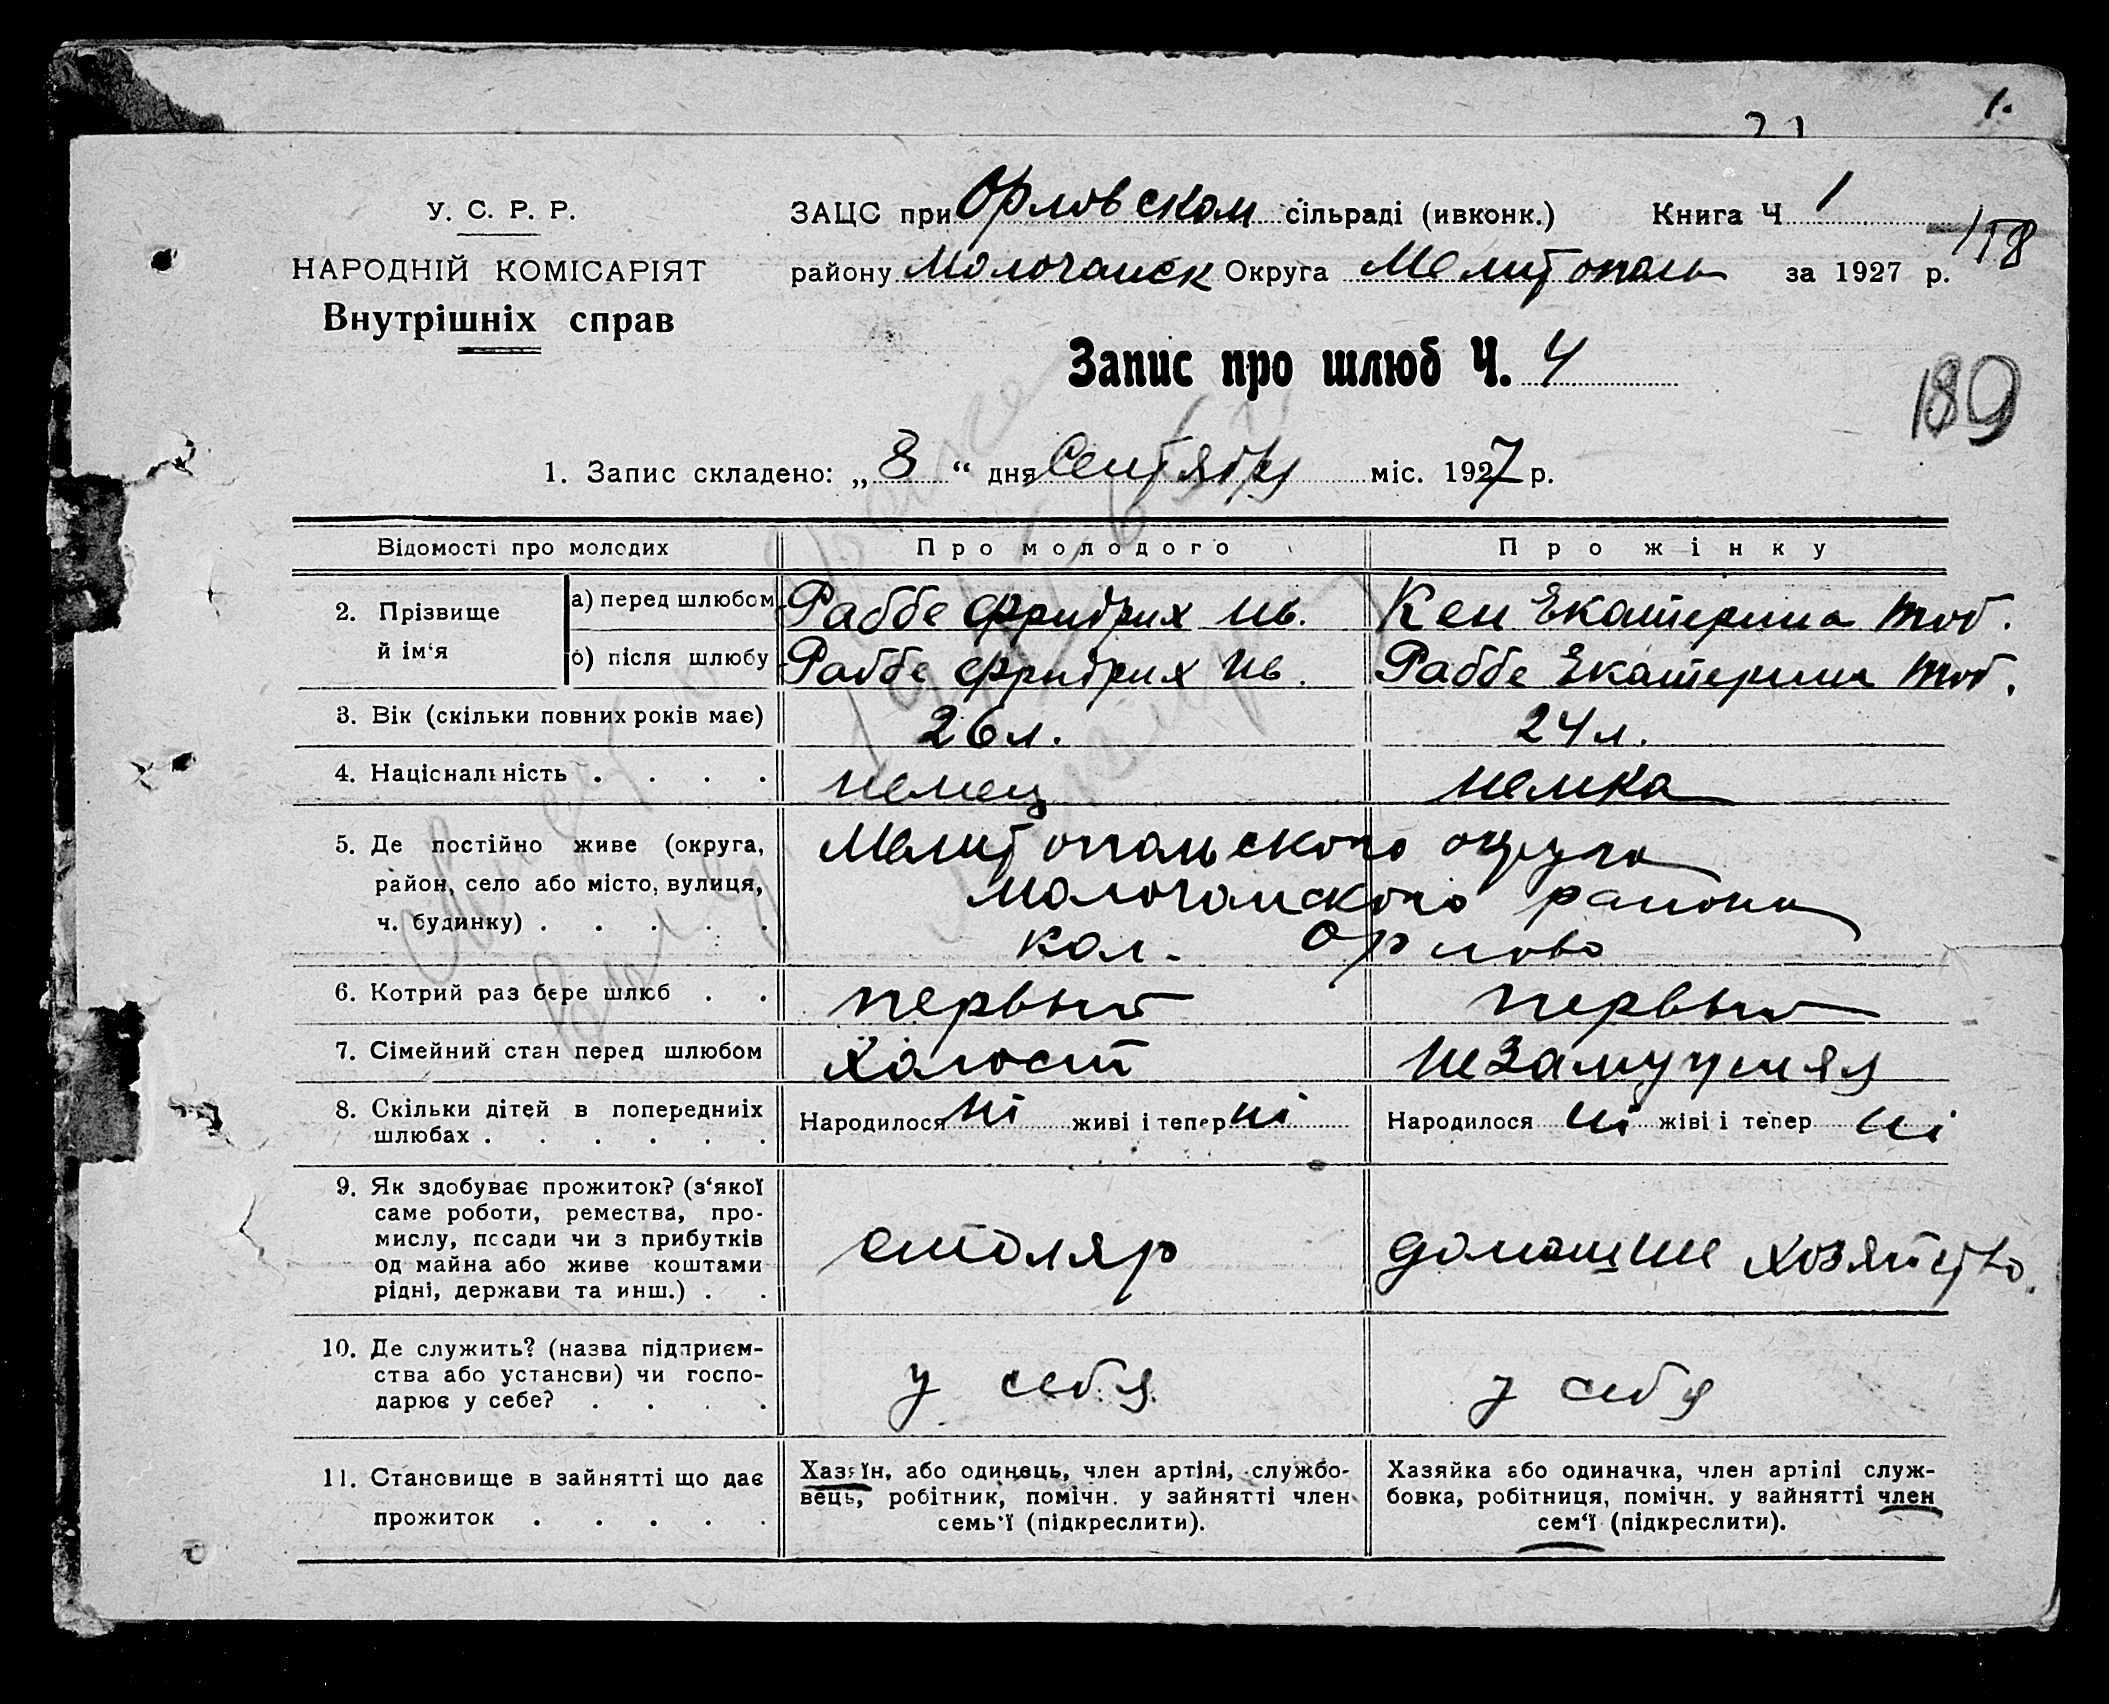 1.
У. С. Р. Р.
НАРОДНІЙ КОМІСАРІЯТ
Внутрішніх справ
ЗАЦС при Орловском сільраді (ивконк.) Книга Ч 1
158
району Молочанск Округа Мелитополь за 1927 р.
Запис про шлюб Ч. 4
189
1. Запис складено: „ 8 “ дня Сентября міс. 1927 р.
Відомості про молодих Про молодого Про жінку
2. Прізвище й ім‘я
а) перед шлюбом Раббе Фридрих Ив. Кен Екатерина Тоб.
б) після шлюбу Раббе Фридрих Ив. Раббе Екатерина Тоб.
3. Вік (скільки повних років має) 26 л. 24 л.
4. Національність . . . . немец немка
5. Де постійно живе (округа, Мелитопольского округа
район, село або місто, вулиця, Молочанского района
ч. будинку) . . . . . кол. Орлово
6. Котрий раз бере шлюб . . первый первый
7. Сімейний стан перед шлюбом холост незамужняя
8. Скільки дітей в попередниіх
шлюбах . . . . . . Народилося ні живі і тепер ні Народилося ні жіві і тепер ні
9. Як здобуває прожиток? (з‘якої
саме роботи, ремества, про-
мислу, посади чи з прибутків
од майна або живе коштами
рідні, держави та инш.) . .
столяр домашне хозяйство.
10. Де служить? (назва підприєм-
ства або установи) чи госпо-
дарює у себе? . . . .
у себя у себя
11. Становище в зайнятті що дає
прожиток . . . . .
Хазяїн, або одинець, член артілі, службо-
вець, робітник, помічн. у зайнятті член
семь‘ї (підкреслити).
Хазяйка або одиначка, член артілі служ-
бовка, робітниця, помічн. у зайнятті член
сем‘ї (підкреслити).